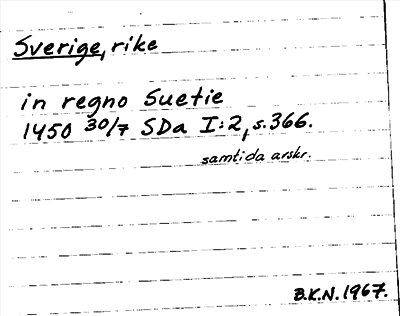 Sverige, rike
in regno Suetie
1450 30/7 SDa I:2, s.366.
samtida avskr.
B.K.N. 1967.